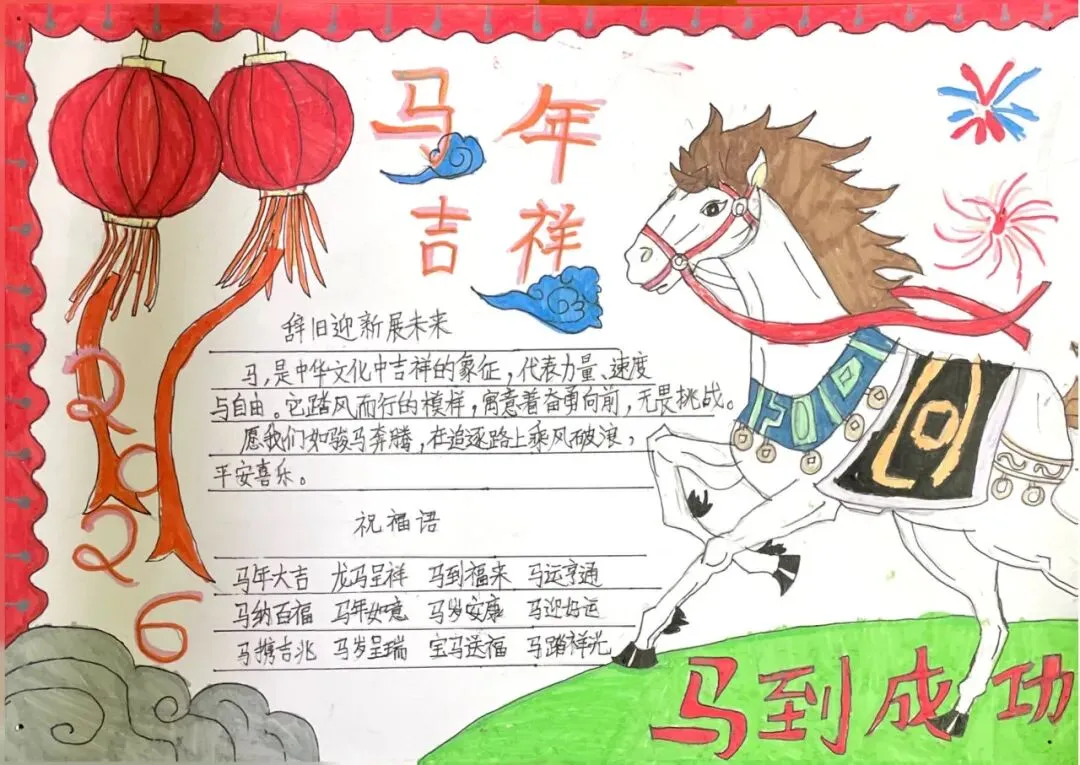 马年
吉祥
辞旧迎新展未来
马,是中华文化中吉祥的象征,代表力量、速度
与自由。它踏风而行的模样,寓意着奋勇向前,无畏挑战。
愿我们如骏马奔腾,在追逐路上乘风破浪,
平安喜乐。
祝福语
马年大吉 龙马呈祥 马到福来 马运亨通
马纳百福 马年如意 马岁安康 马迎好运
马携吉兆 马岁呈瑞 宝马送福 马踏祥光
2026
马到成功